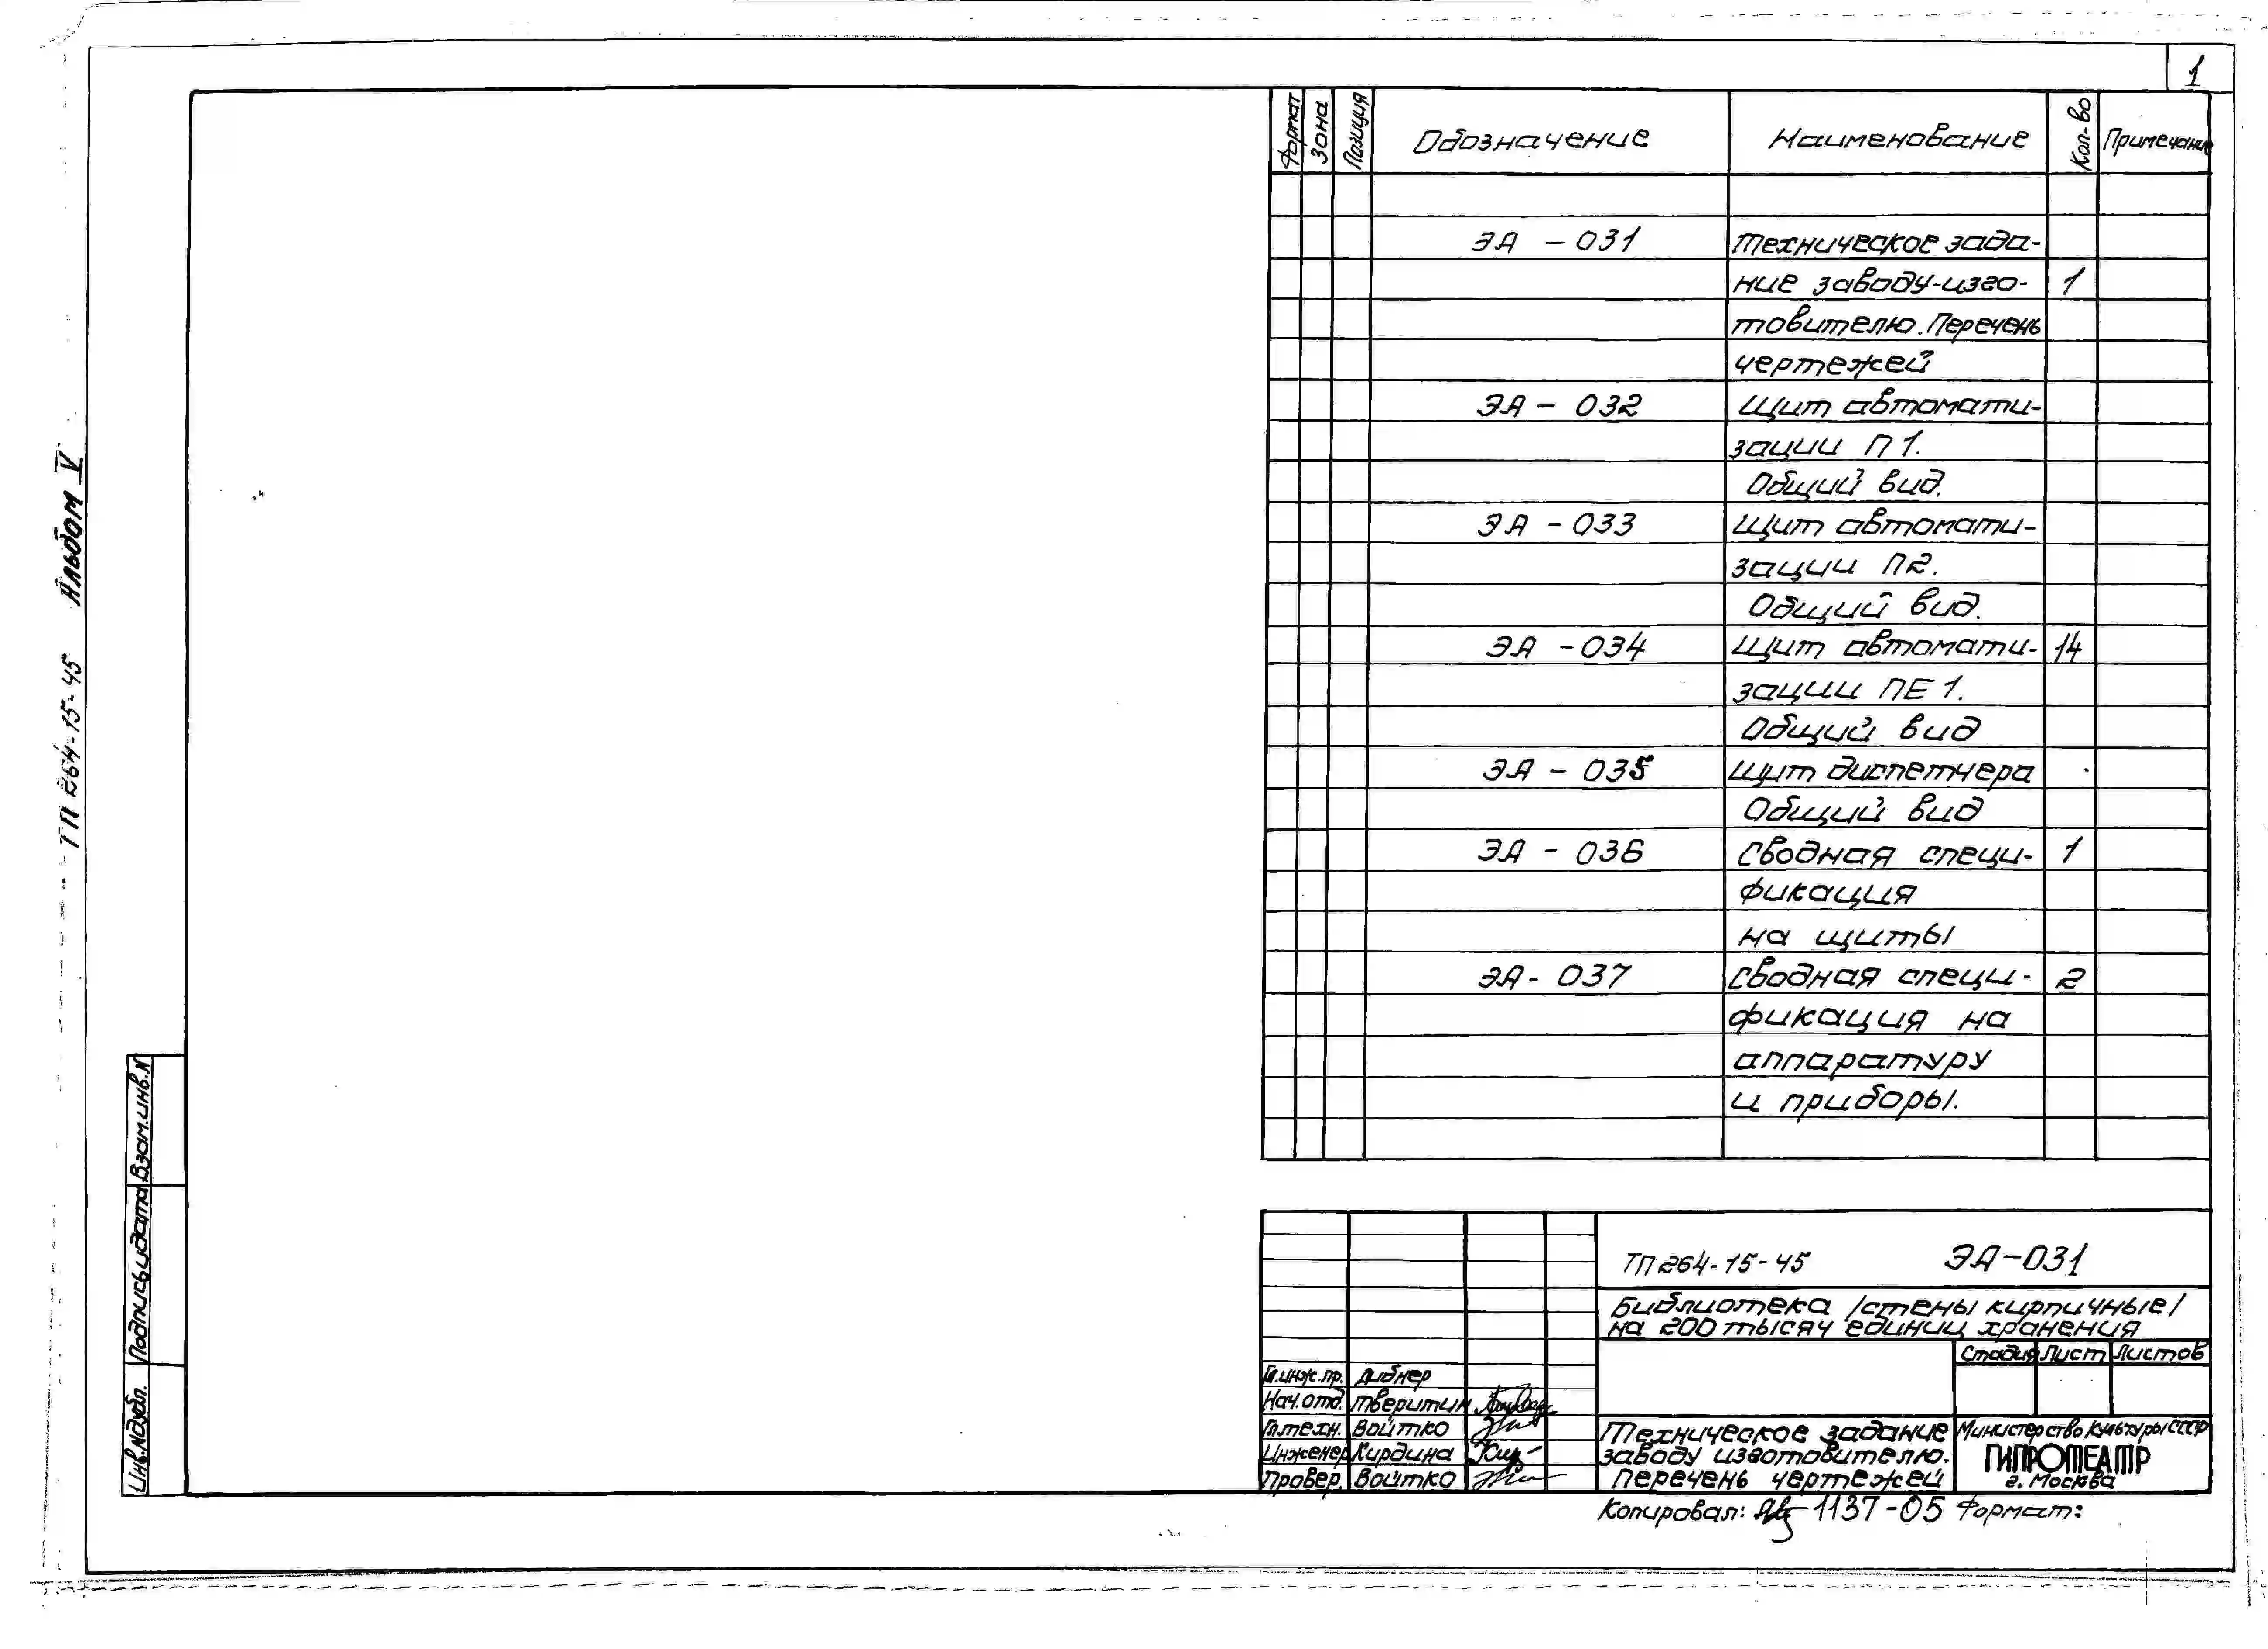 1
Формат Зона Позиция Обозначение Наименование Кол-во Примечание
ЭА - 031 Техническое зада-
ние заводу-изго- 1
товителю. Перечень
чертежей
ЭА - 032 Щит автомати-
зации П1.
Общий вид.
ЭА - 033 Щит автомати-
зации П2.
Общий вид.
ЭА - 034 Щит автомати- 14
зации ПЕ1.
Общий вид
ЭА - 035 Щит диспетчера
Общий вид
ЭА - 036 Сводная специ- 1
фикация
на щиты
ЭА - 037 Сводная специ- 2
фикация на
аппаратуру
и приборы.
ТП 264-15-45 Альбом V
Взам.инв.N
Подпись и дата
Инв.Nдубл.
ТП 264-15-45 ЭА-031
Библиотека /стены кирпичные/
на 200 тысяч единиц хранения
Стадия Лист Листов
Гл.инж.пр. Дибнер
Нач.отд. Тверитин
Гл.техн. Войтко
Инженер Кирдина
Провер. Войтко
Техническое задание
заводу изготовителю.
Перечень чертежей
Министерство культуры СССР
ГИПРОТЕАТР
г. Москва
Копировал: 1137-05 Формат: